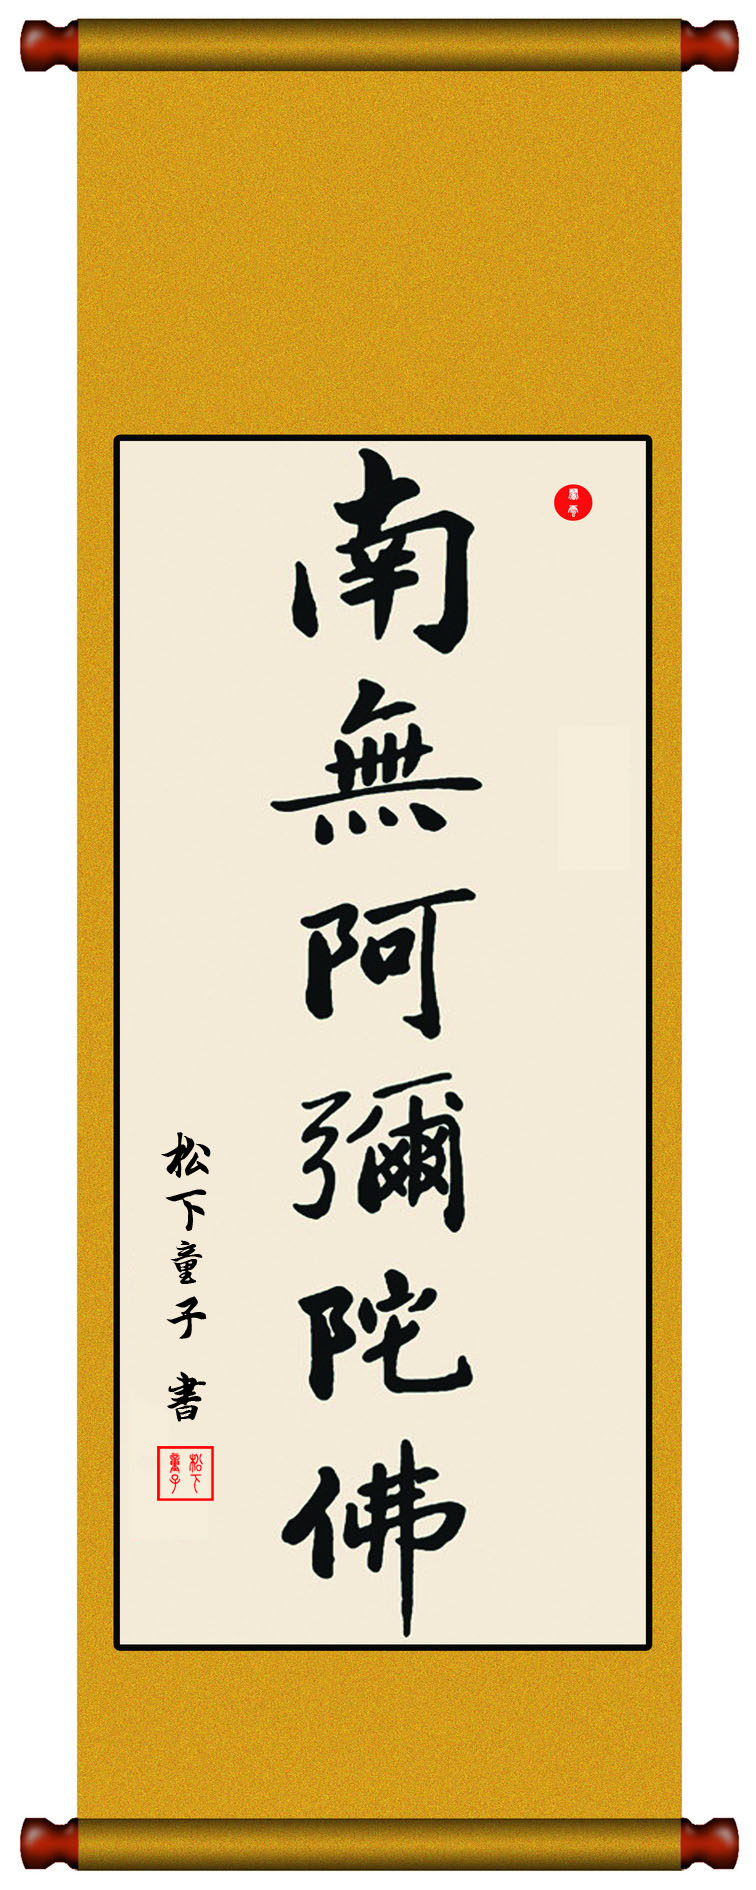 南無阿彌陀佛
松下童子 書
松下童子